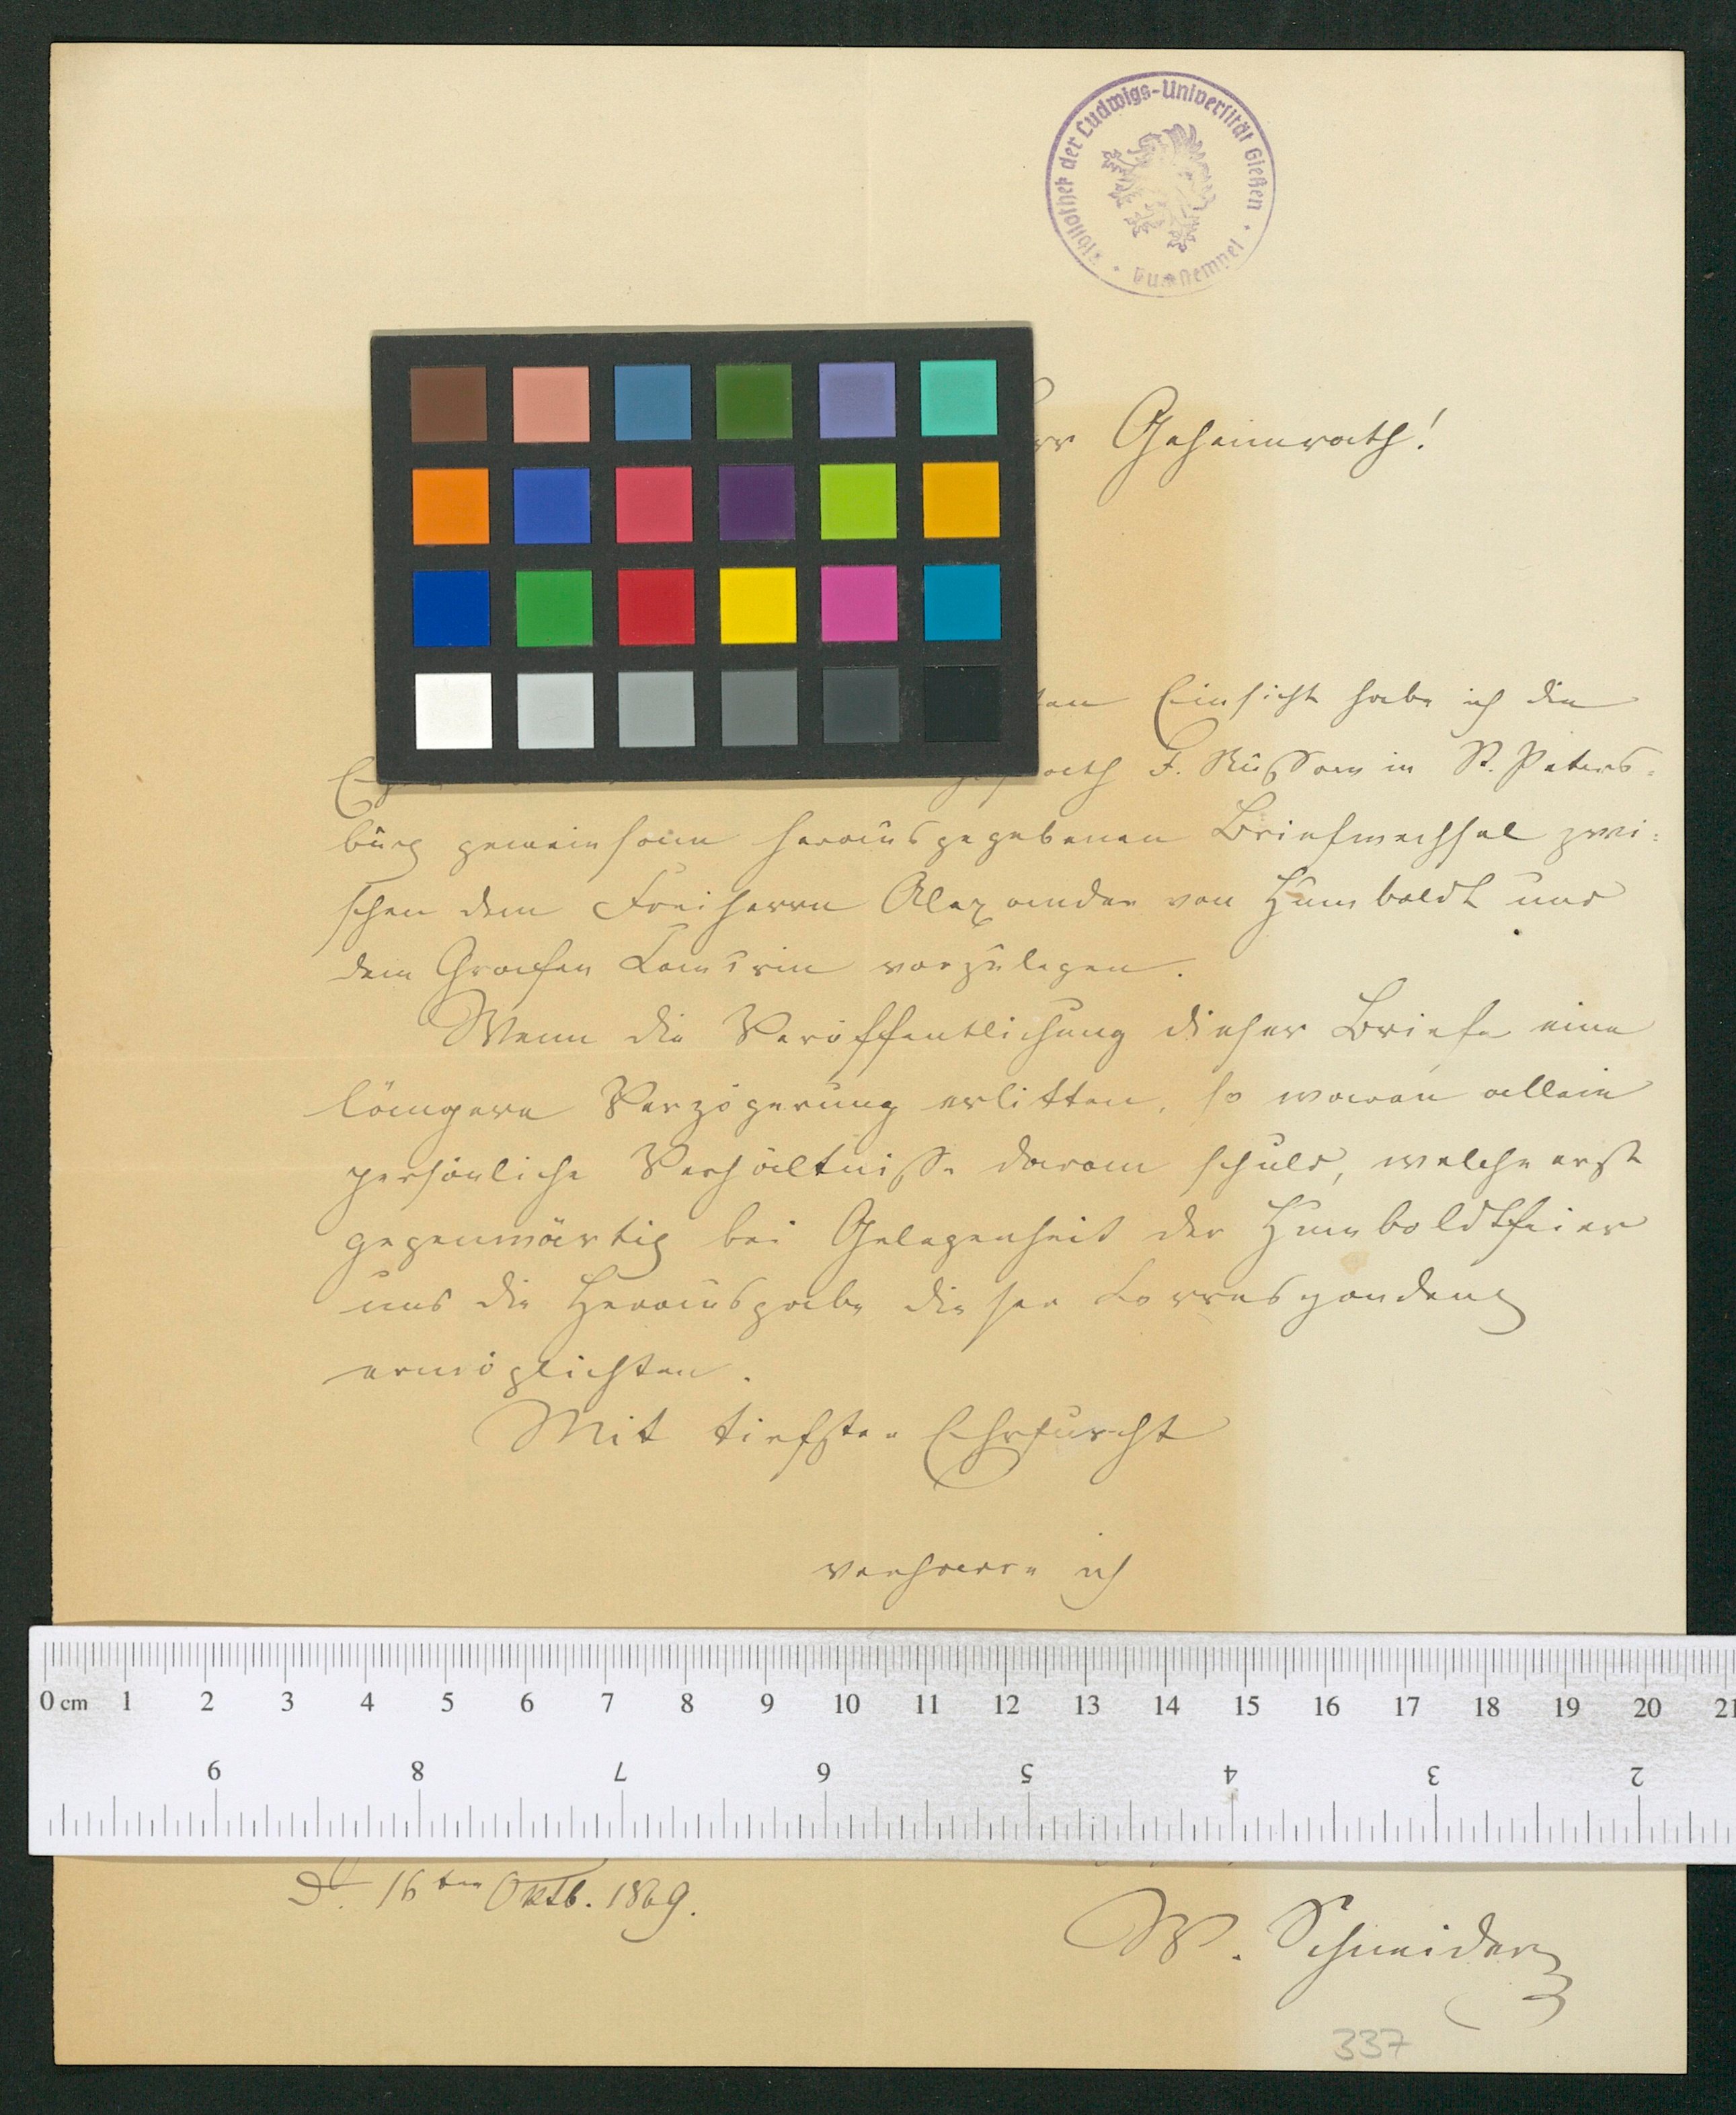 Bibliothek der Ludwigs-Universität Gießen
Geheimrath!
Einsicht habe ich die
F. Russow in St. Peters-
burg gemeinsam herausgegebenen Briefwechsel zwi-
schen dem Freiherrn Alexander von Humboldt und
dem Grafen Cancrin vorzulegen.
Wenn die Veröffentlichung dieser Briefe eine
längere Verzögerung erlitten, so waren allein
persönliche Verhältnisse daran schuld, welche erst
gegenwärtig bei Gelegenheit der Humboldtfeier
uns die Herausgabe dieser Correspondenz
ermöglichten.
Mit tiefster Ehrfurcht
verharre ich
0 cm 1 2 3 4 5 6 7 8 9 10 11 12 13 14 15 16 17 18 19 20 21
9 8 7 6 5 4 3 2
16ten Octb. 1869.
W. Schneider
337